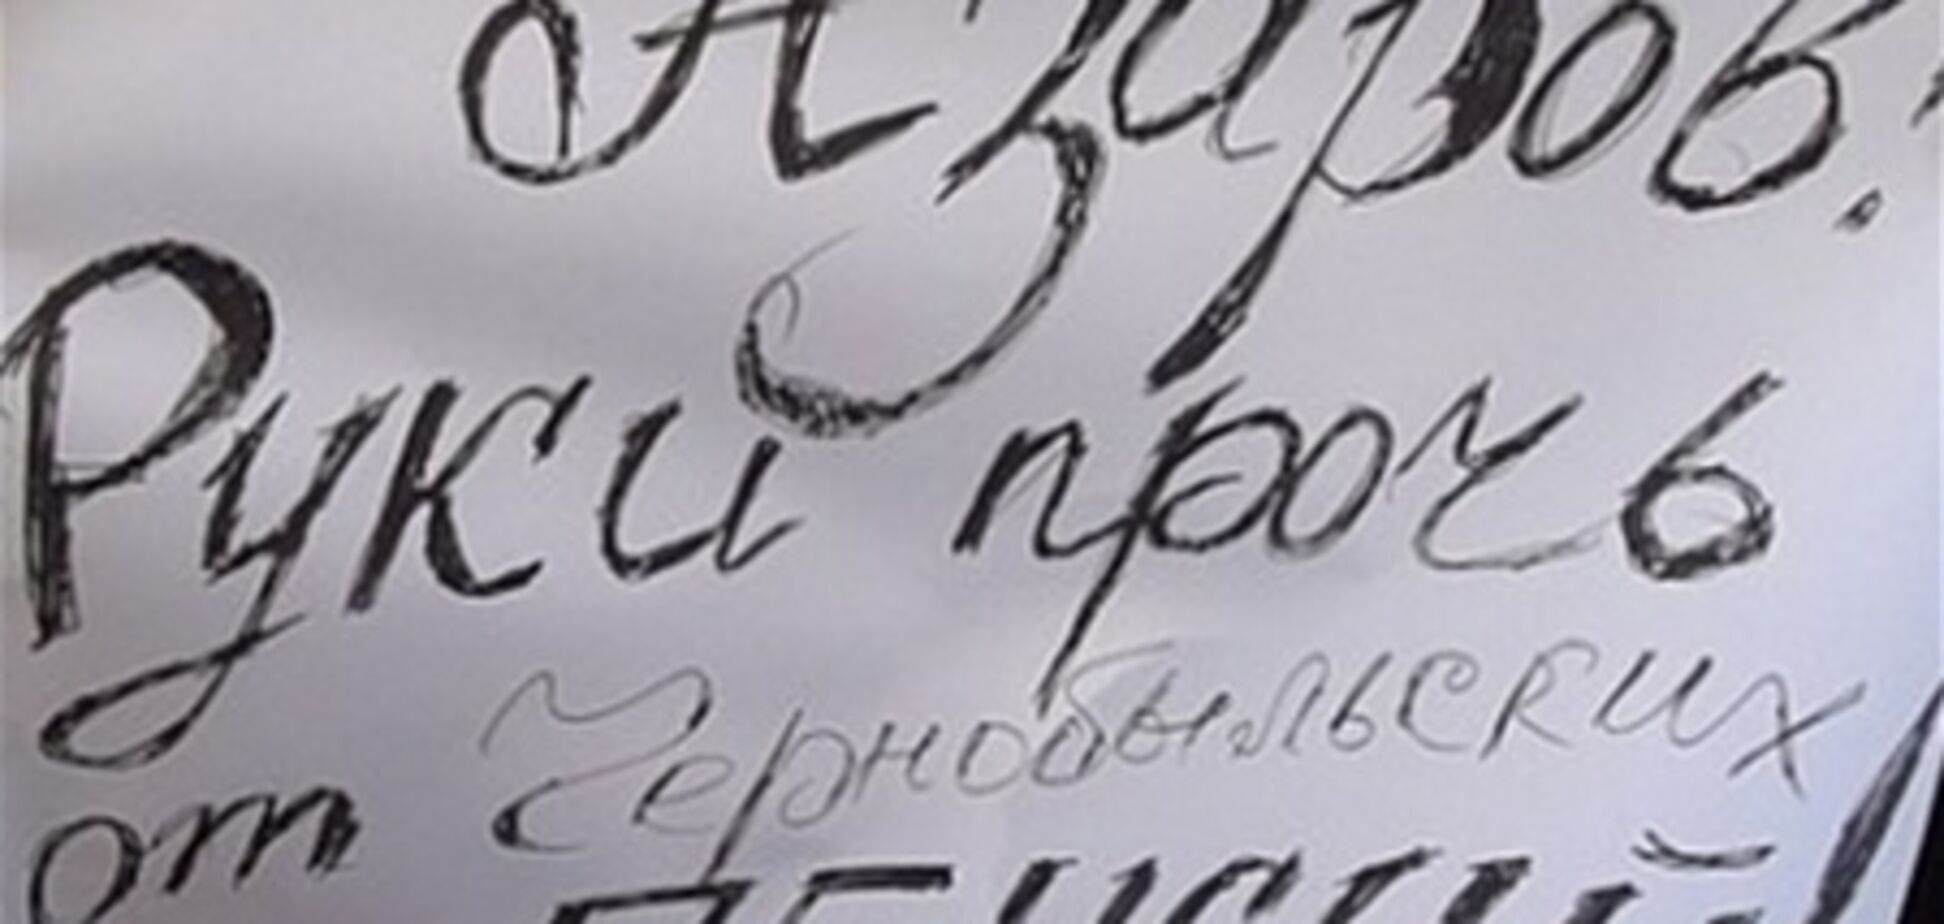 Азаров.
Руки прочь
от Чернобыльских